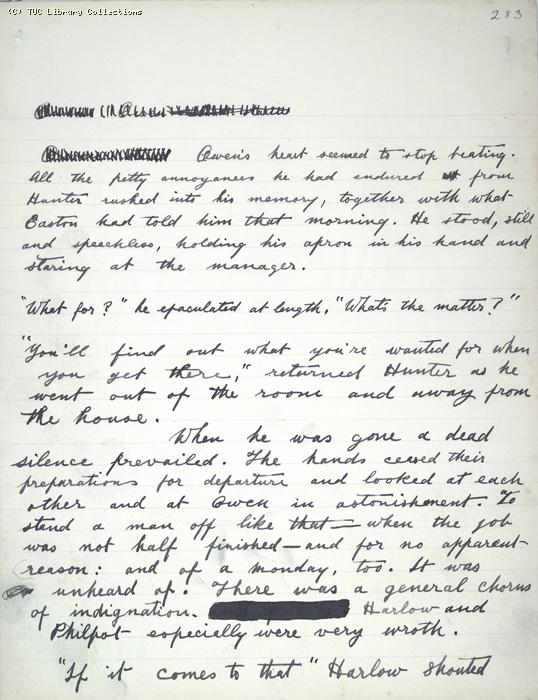 (C) TUC Library Collections
283
Owen's heart seemed to stop beating.
All the petty annoyances he had endured from
Hunter rushed into his memory, together with what
Easton had told him that morning. He stood, still
and speechless, holding his apron in his hand and
staring at the manager.
"What for?" he epaculated at length, "Whats the matter?"
"You'll find out what you're wanted for when
you get there," returned Hunter as he
went out of the room and away from
the house.
When he was gone a dead
silence prevailed. The hands ceased their
preparations for departure and looked at each
other and at Owen in astonishment. To
stand a man off like that — when the job
was not half finished — and for no apparent
reason: and of a monday, too. It was
unheard of. There was a general chorus
of indignation. Harlow and
Philpot especially were very wroth.
"If it comes to that" Harlow shouted